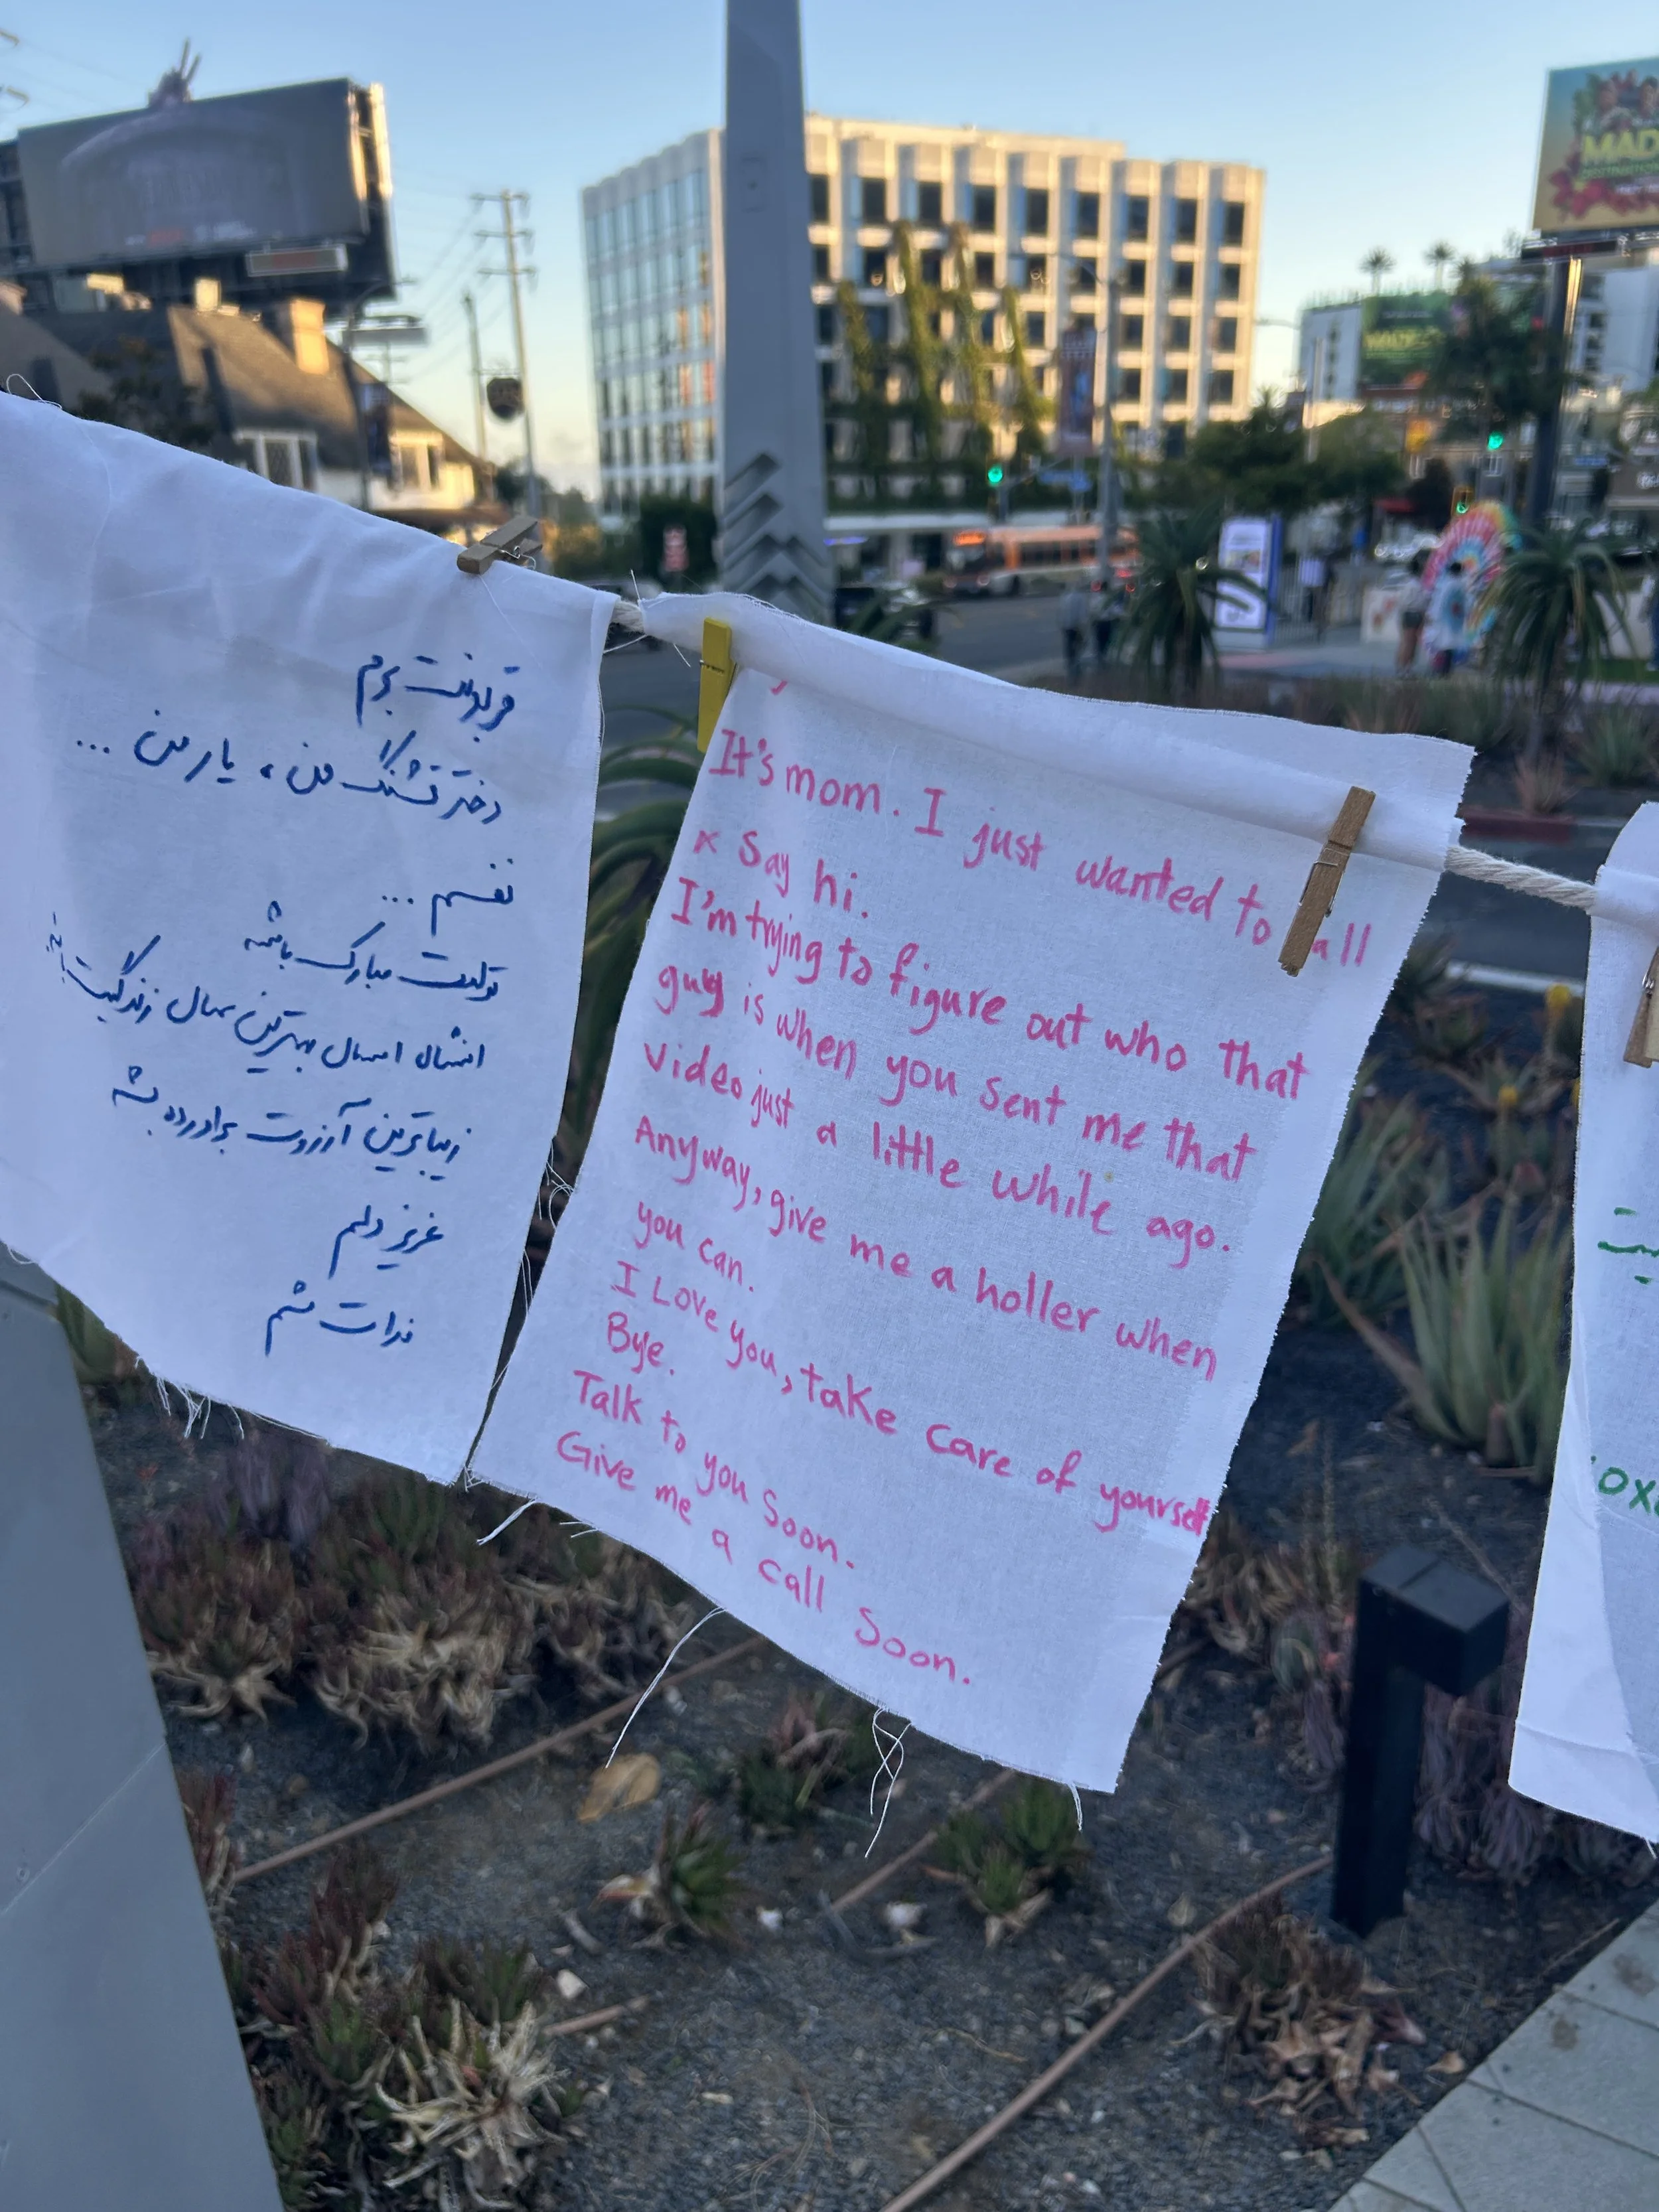 قربونت برم
دختر قشنگ من، یار من ...
نفسم ...
تولدت مبارک باشه
انشاله امسال بهترین سال زندگیت باشه
زیباترین آرزوت برآورده بشه
عزیز دلم
فدات شم
It's mom. I just wanted to all
Say hi.
I'm trying to figure out who that
guy is when you sent me that
video just a little while ago.
Anyway, give me a holler when
you can.
I Love you, take care of yourself
Bye.
Talk to you Soon.
Give me a call Soon.
MAD